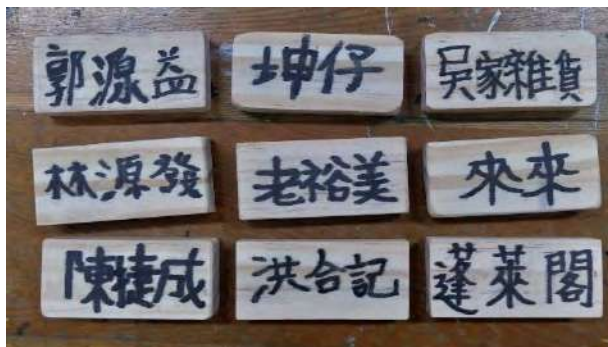 郭源益
坤仔
吳家雜貨
林源發
老裕美
來來
陳捷成
洪合記
蓬萊閣